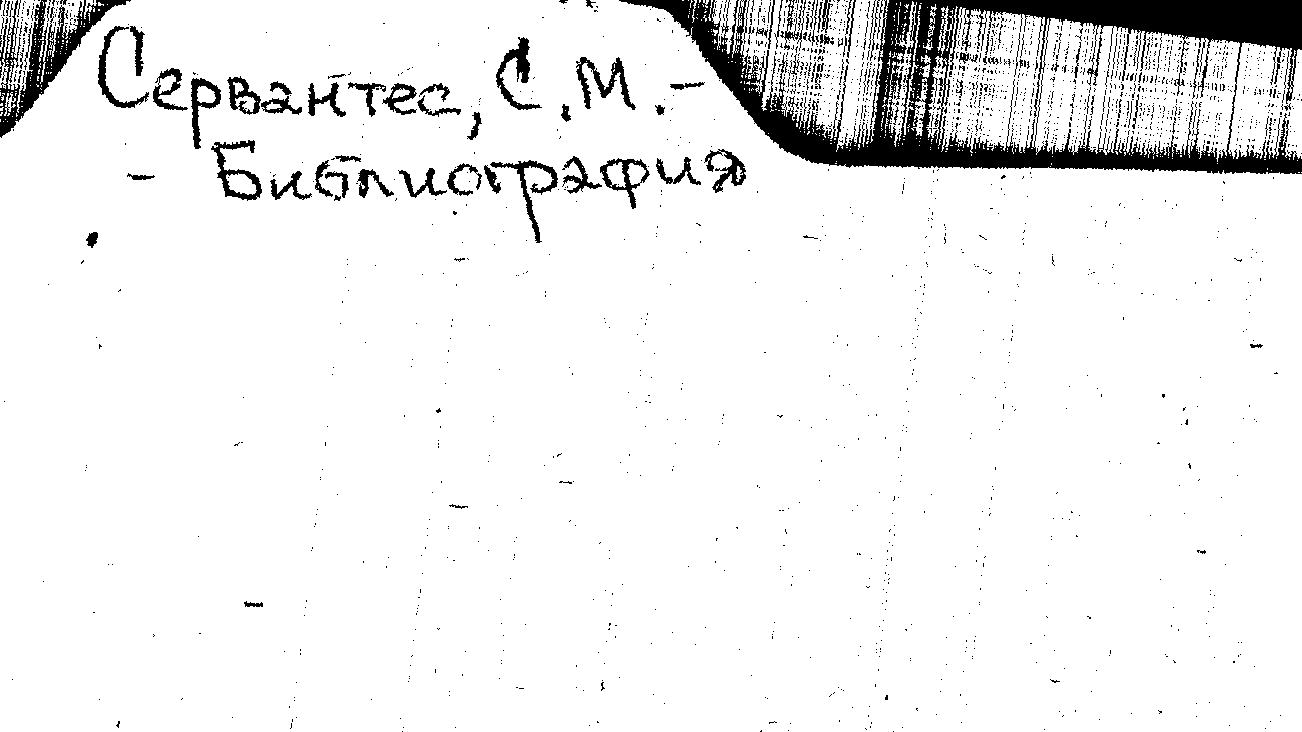 Сервантес, С.М.-
- Библиография